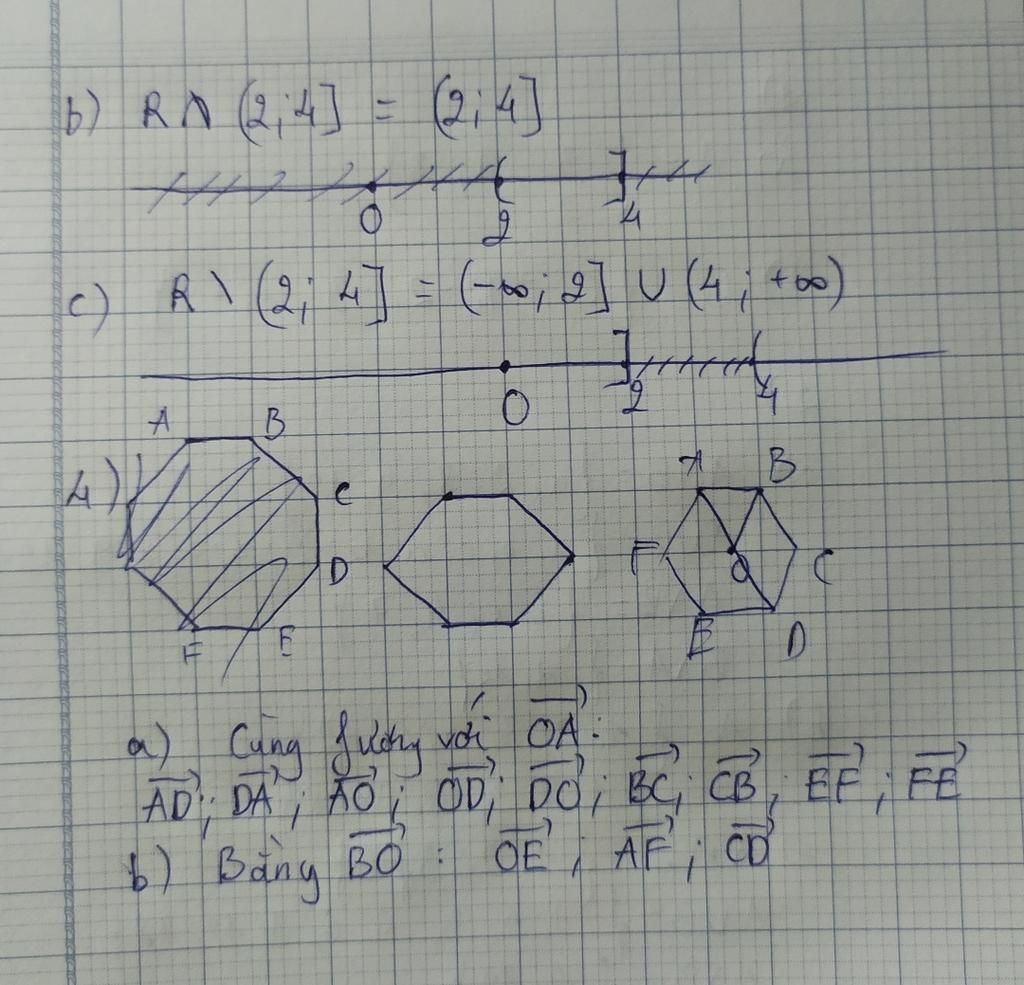 b) R ∩ (2; 4] = (2; 4]
0 2 4
c) R \ (2; 4] = (-∞; 2] ∪ (4; +∞)
0 2 4
4)
A B
C
D
F E
A B
F O C
E D
a) Cùng phương với \overrightarrow{OA}:
\overrightarrow{AD}; \overrightarrow{DA}; \overrightarrow{AO}; \overrightarrow{OD}; \overrightarrow{DO}; \overrightarrow{BC}; \overrightarrow{CB}; \overrightarrow{EF}; \overrightarrow{FE}
b) Bằng \overrightarrow{BO}: \overrightarrow{OE}; \overrightarrow{AF}; \overrightarrow{CD}